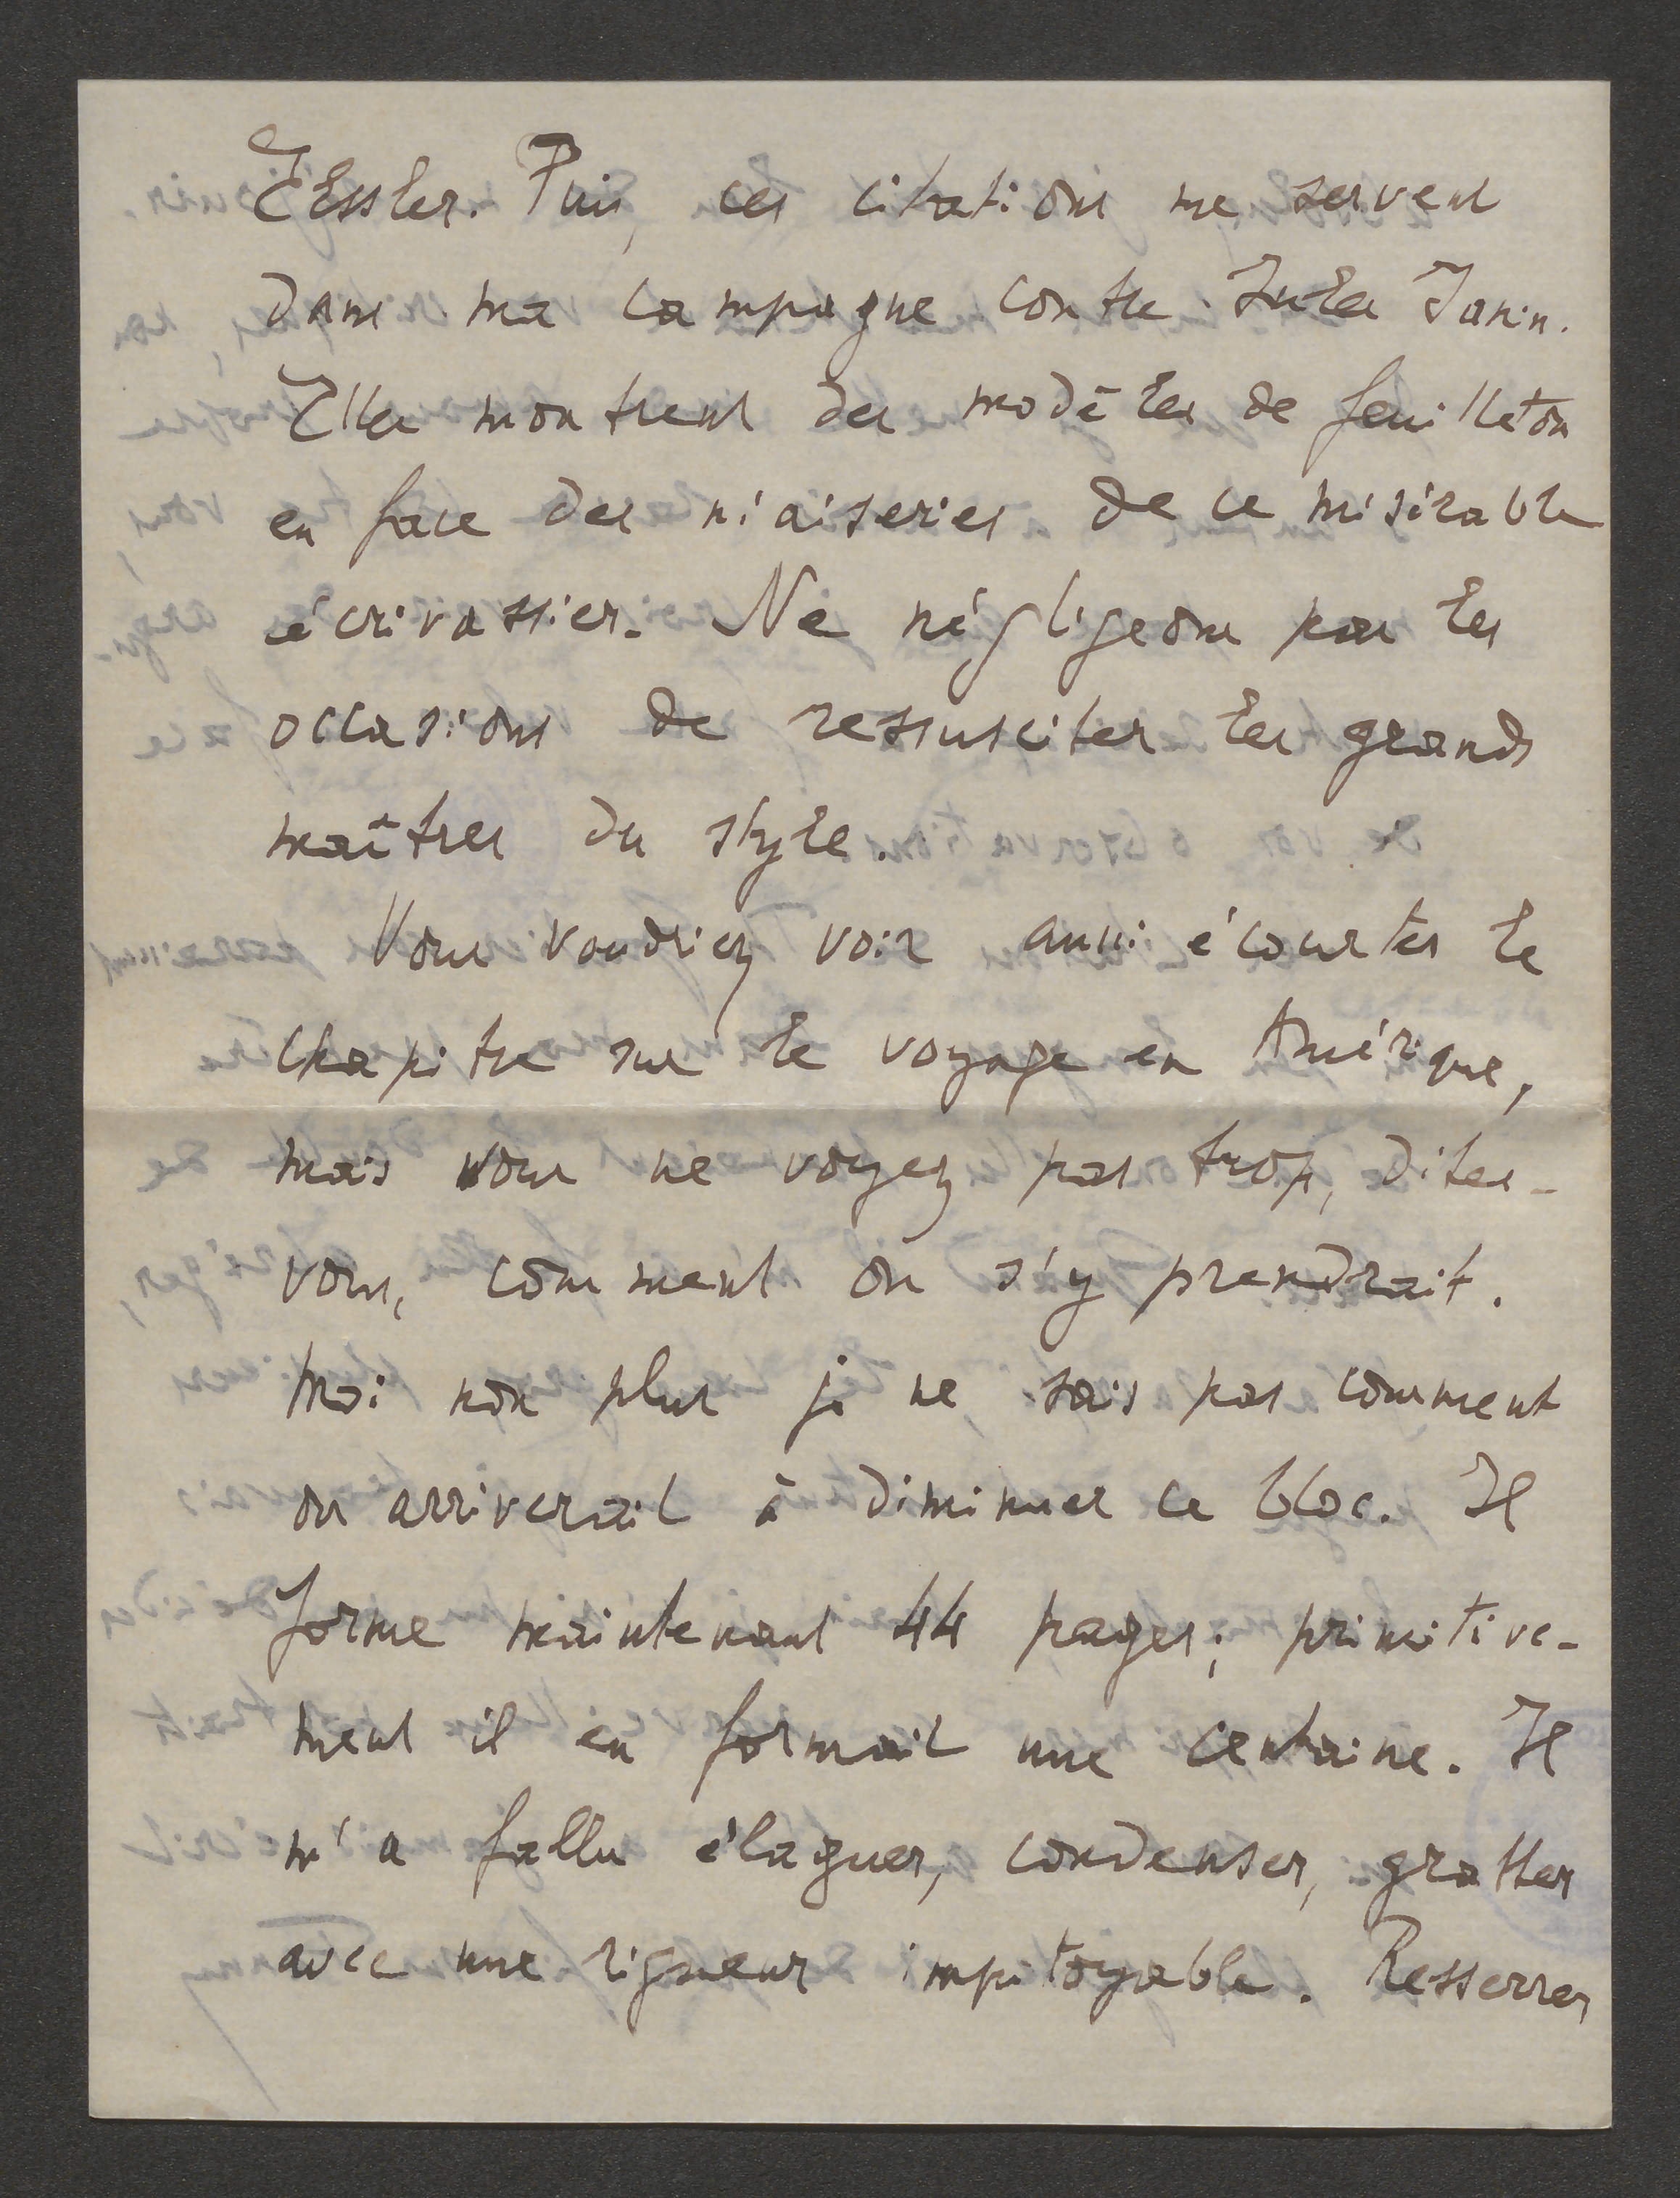 Elssler. Puis, ces citations me servent
dans ma campagne contre Jules Janin.
Elles montrent des modèles de feuilleton
en face des niaiseries de ce misérable
écrivassier. Ne négligeons pas les
occasions de ressusciter les grands
maîtres du style.
Vous voudriez voir aussi écourter le
chapitre sur le voyage en Amérique,
mais vous ne voyez pas trop, dites-
vous, comment on s'y prendrait.
Moi non plus je ne sais pas comment
on arriverait à diminuer ce bloc. Il
forme maintenant 44 pages; primitive-
ment il en formait une centaine. Il
m'a fallu élaguer, condenser, gratter
avec une rigueur impitoyable. Resserrer